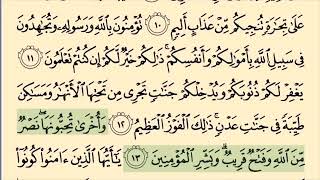 عَلَىٰ تِجَٰرَةٍ تُنجِيكُم مِّنْ عَذَابٍ أَلِيمٍ ١٠ تُؤْمِنُونَ بِٱللَّهِ وَرَسُولِهِۦ وَتُجَٰهِدُونَ
فِى سَبِيلِ ٱللَّهِ بِأَمْوَٰلِكُمْ وَأَنفُسِكُمْ ذَٰلِكُمْ خَيْرٌ لَّكُمْ إِن كُنتُمْ تَعْلَمُونَ ١١
يَغْفِرْ لَكُمْ ذُنُوبَكُمْ وَيُدْخِلْكُمْ جَنَّٰتٍ تَجْرِى مِن تَحْتِهَا ٱلْأَنْهَٰرُ وَمَسَٰكِنَ
طَيِّبَةً فِى جَنَّٰتِ عَدْنٍ ذَٰلِكَ ٱلْفَوْزُ ٱلْعَظِيمُ ١٢ وَأُخْرَىٰ تُحِبُّونَهَا نَصْرٌ
مِّنَ ٱللَّهِ وَفَتْحٌ قَرِيبٌ وَبَشِّرِ ٱلْمُؤْمِنِينَ ١٣ يَٰٓأَيُّهَا ٱلَّذِينَ ءَامَنُوا۟ كُونُوٓا۟